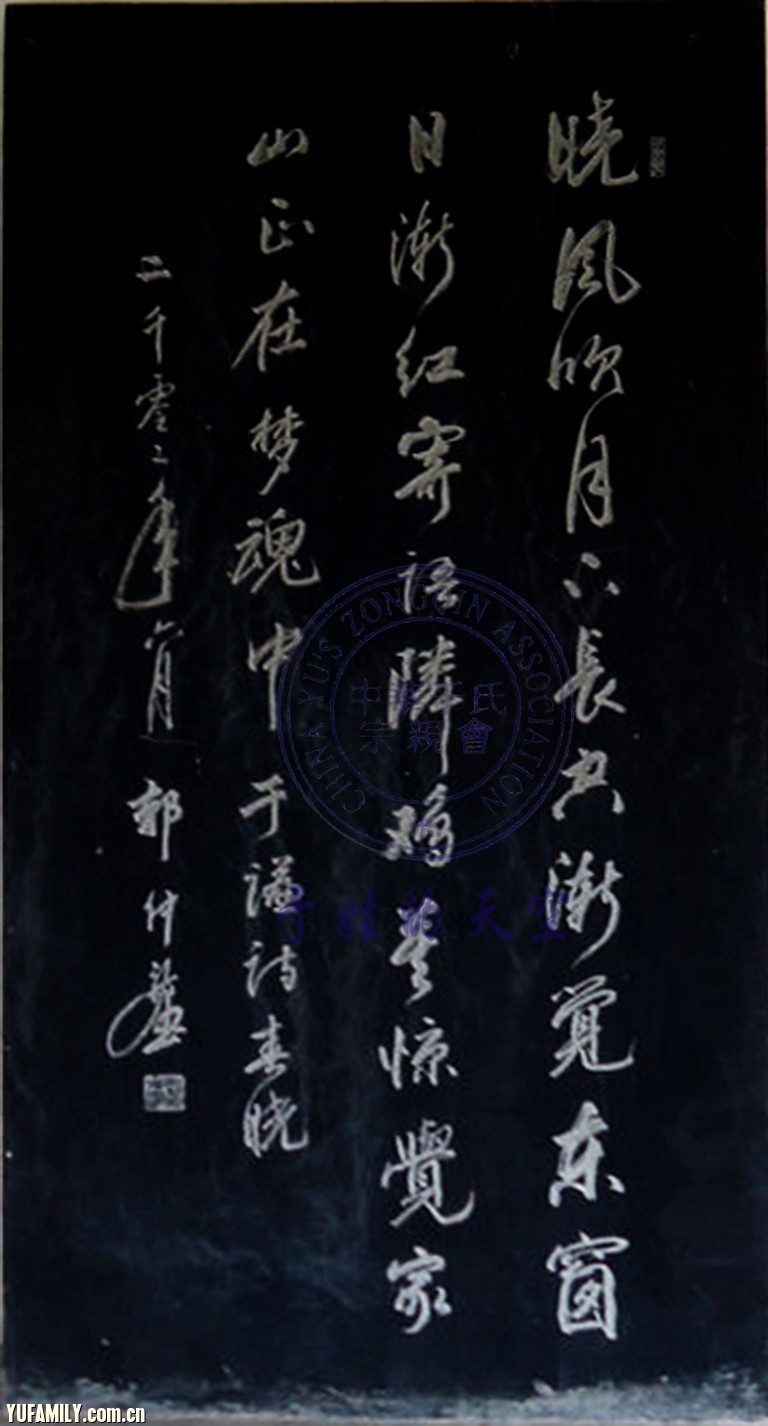 晓风吹月下長空渐覚东窗
日渐红寄语隣鸡莫惊覺家
山正在梦魂中 于谦诗春晓
二千零二年六月 郭
CHINA YU'S ZONGQIN ASSOCIATION
中華于氏
宗親會
于姓的天空
YUFAMILY.com.cn